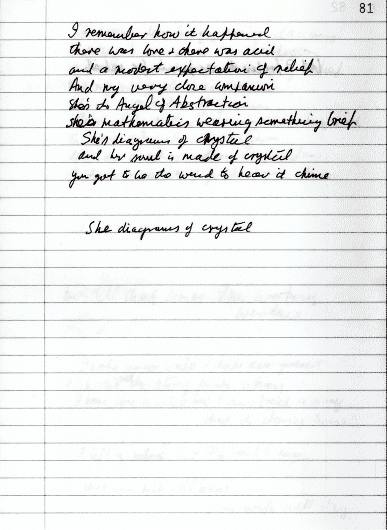 81
I remember how it happened
there was love & there was acid
and a modest expectation of relief
And my very close companion
she's the Angel of Abstraction
she's mathematics wearing something brief
She's diagrams of crystal
and her soul is made of crystal
you got to be the wind to hear it chime
She diagrams of crystal